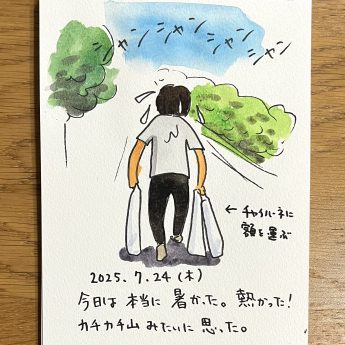 シャン シャン シャン シャン シャン
← チャイハーネに
額を運ぶ
2025. 7. 24 (木)
今日は 本当に 暑かった。熱かった！
カチカチ山 みたいに 思った。